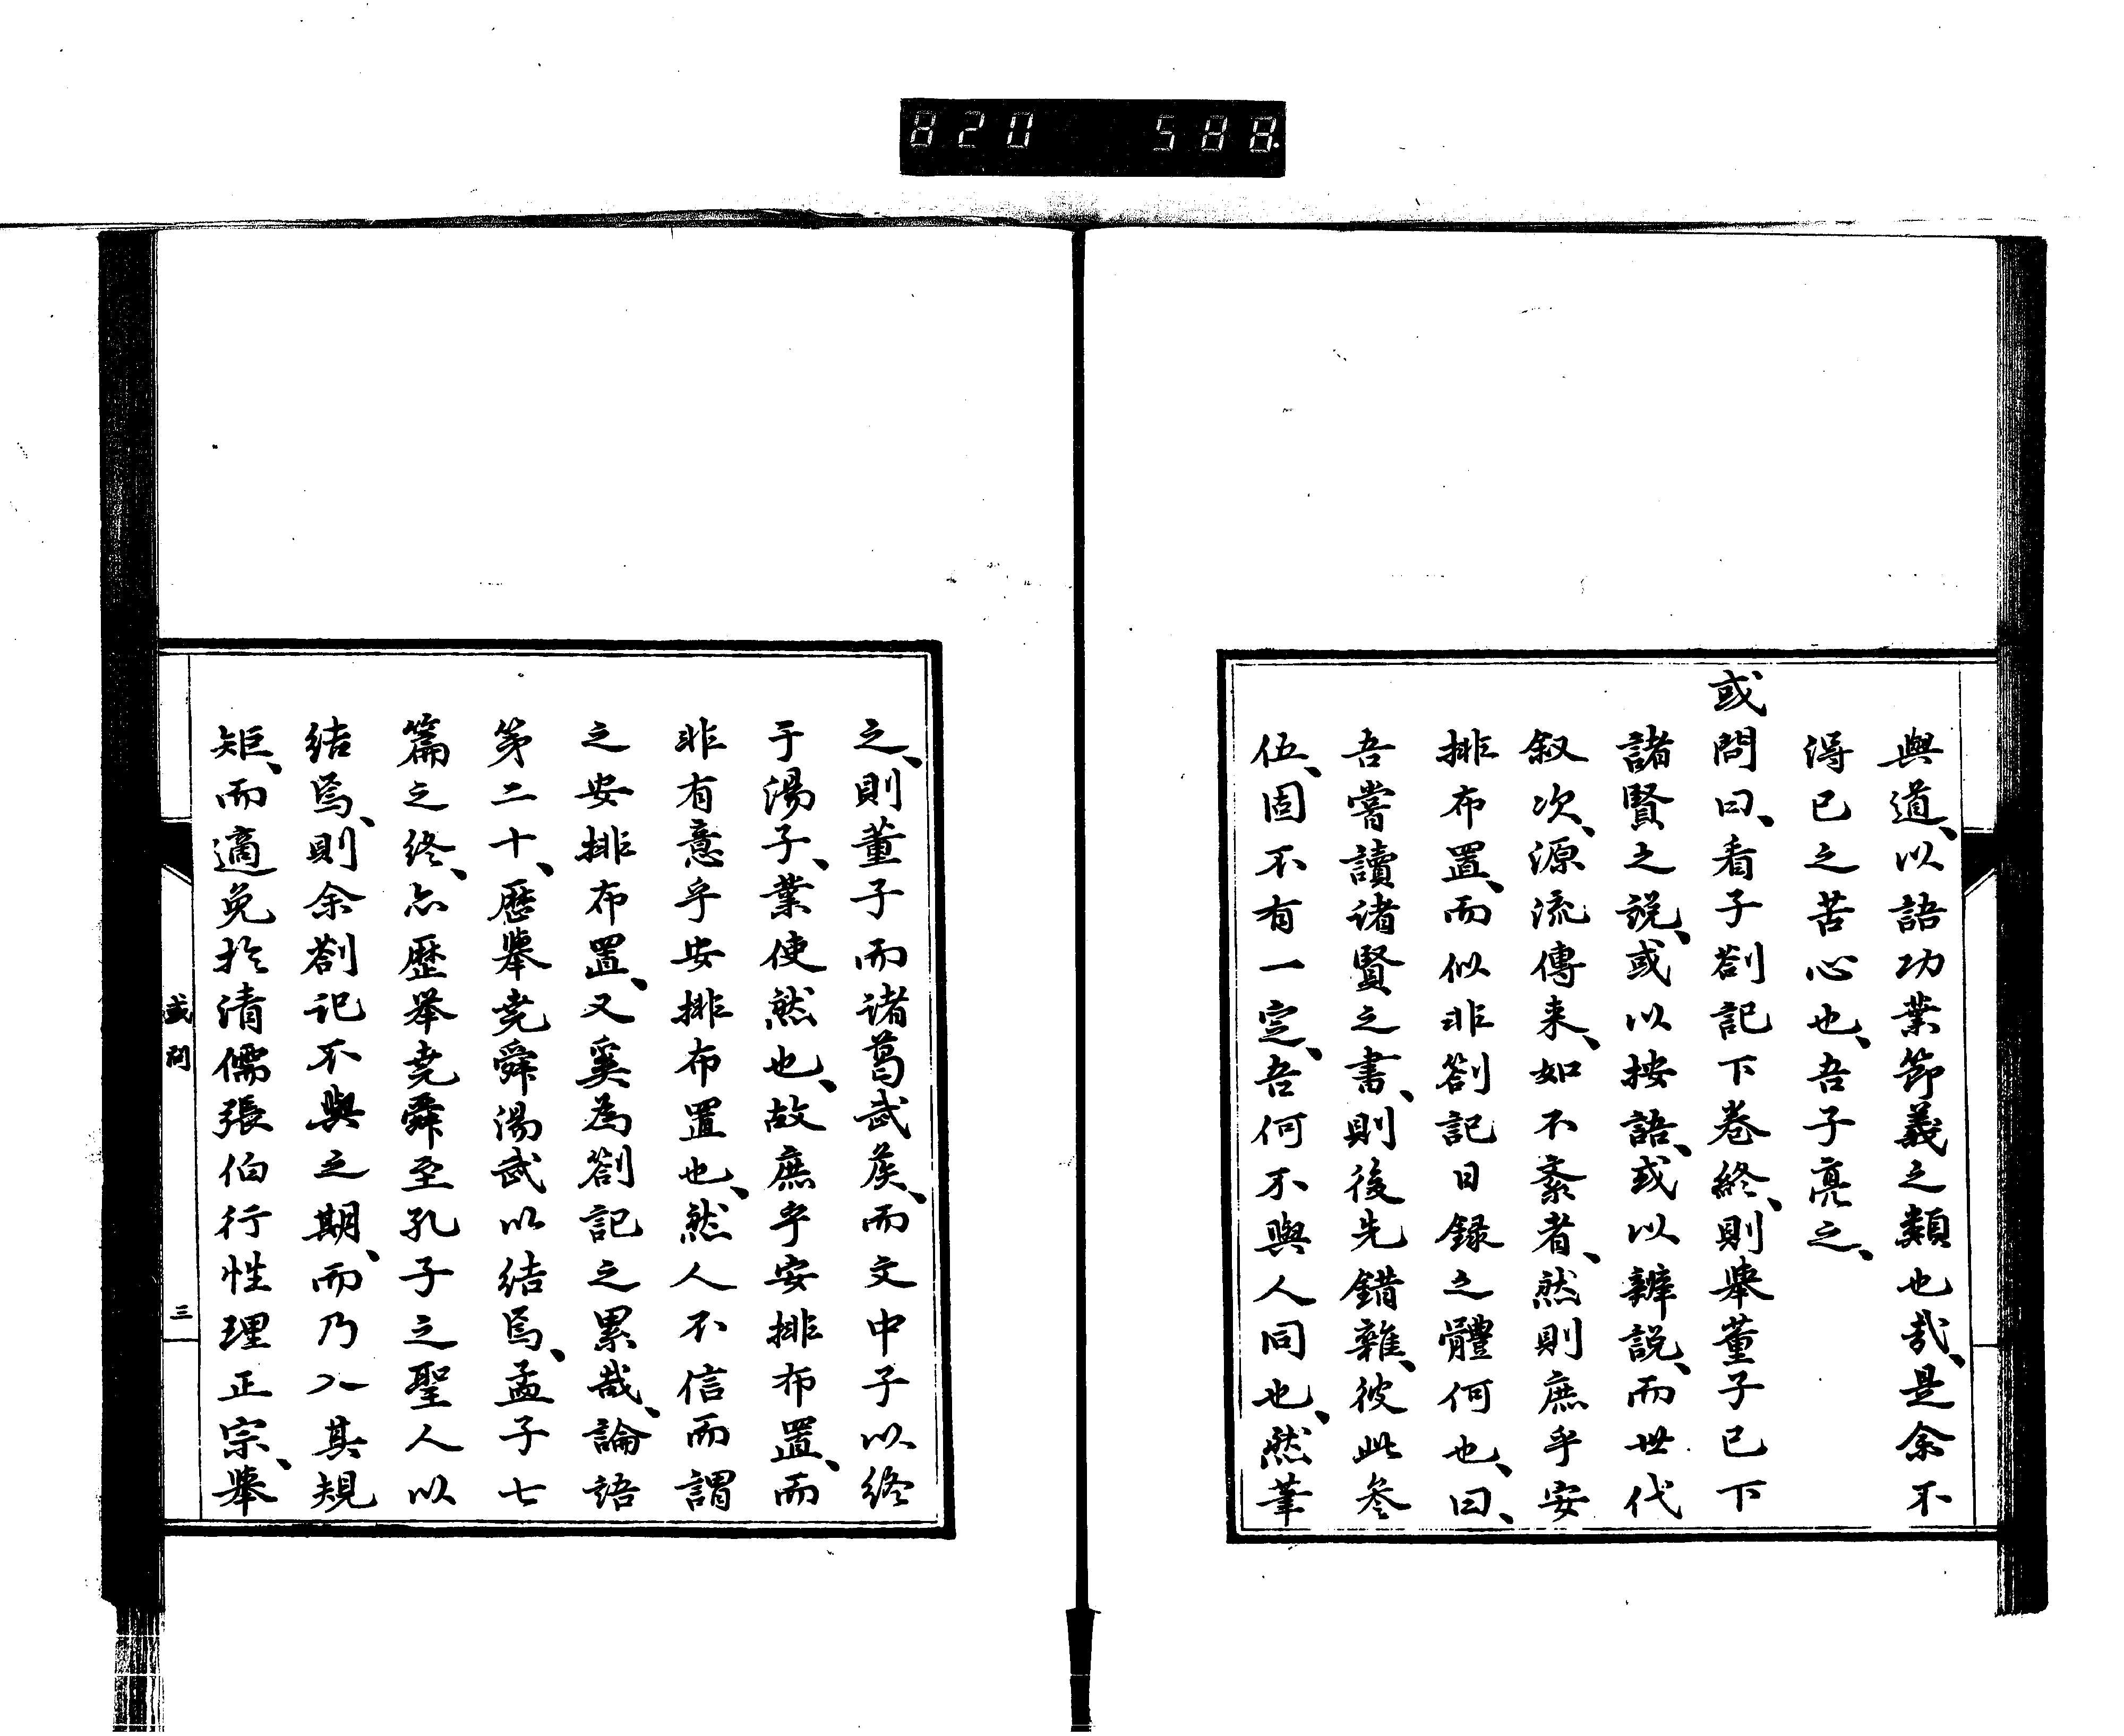 820 588.
與道、以語功業節義之類也哉、是余不
得已之苦心也、吾子亮之、
或問曰、看子劄記下卷終、則擧董子已下
諸賢之説、或以按語、或以辨説、而世代
叙次、源流傳来、如不紊者、然則庶乎安
排布置、而似非劄記日録之體何也、曰、
吾嘗讀諸賢之書、則後先錯雜、彼此參
伍、固不有一定、吾何不與人同也、然筆
之、則董子而諸葛武矦、而文中子以終
于湯子、業使然也、故庶乎安排布置、而
非有意乎安排布置也、然人不信而謂
之安排布置、又奚為劄記之累哉、論語
第二十、歴擧堯舜湯武以結焉、孟子七
篇之終、亦歴举堯舜至孔子之聖人以
结焉、則余劄记不與之期、而乃入其規
矩、而適免於清儒張伯行性理正宗、擧
或問
三